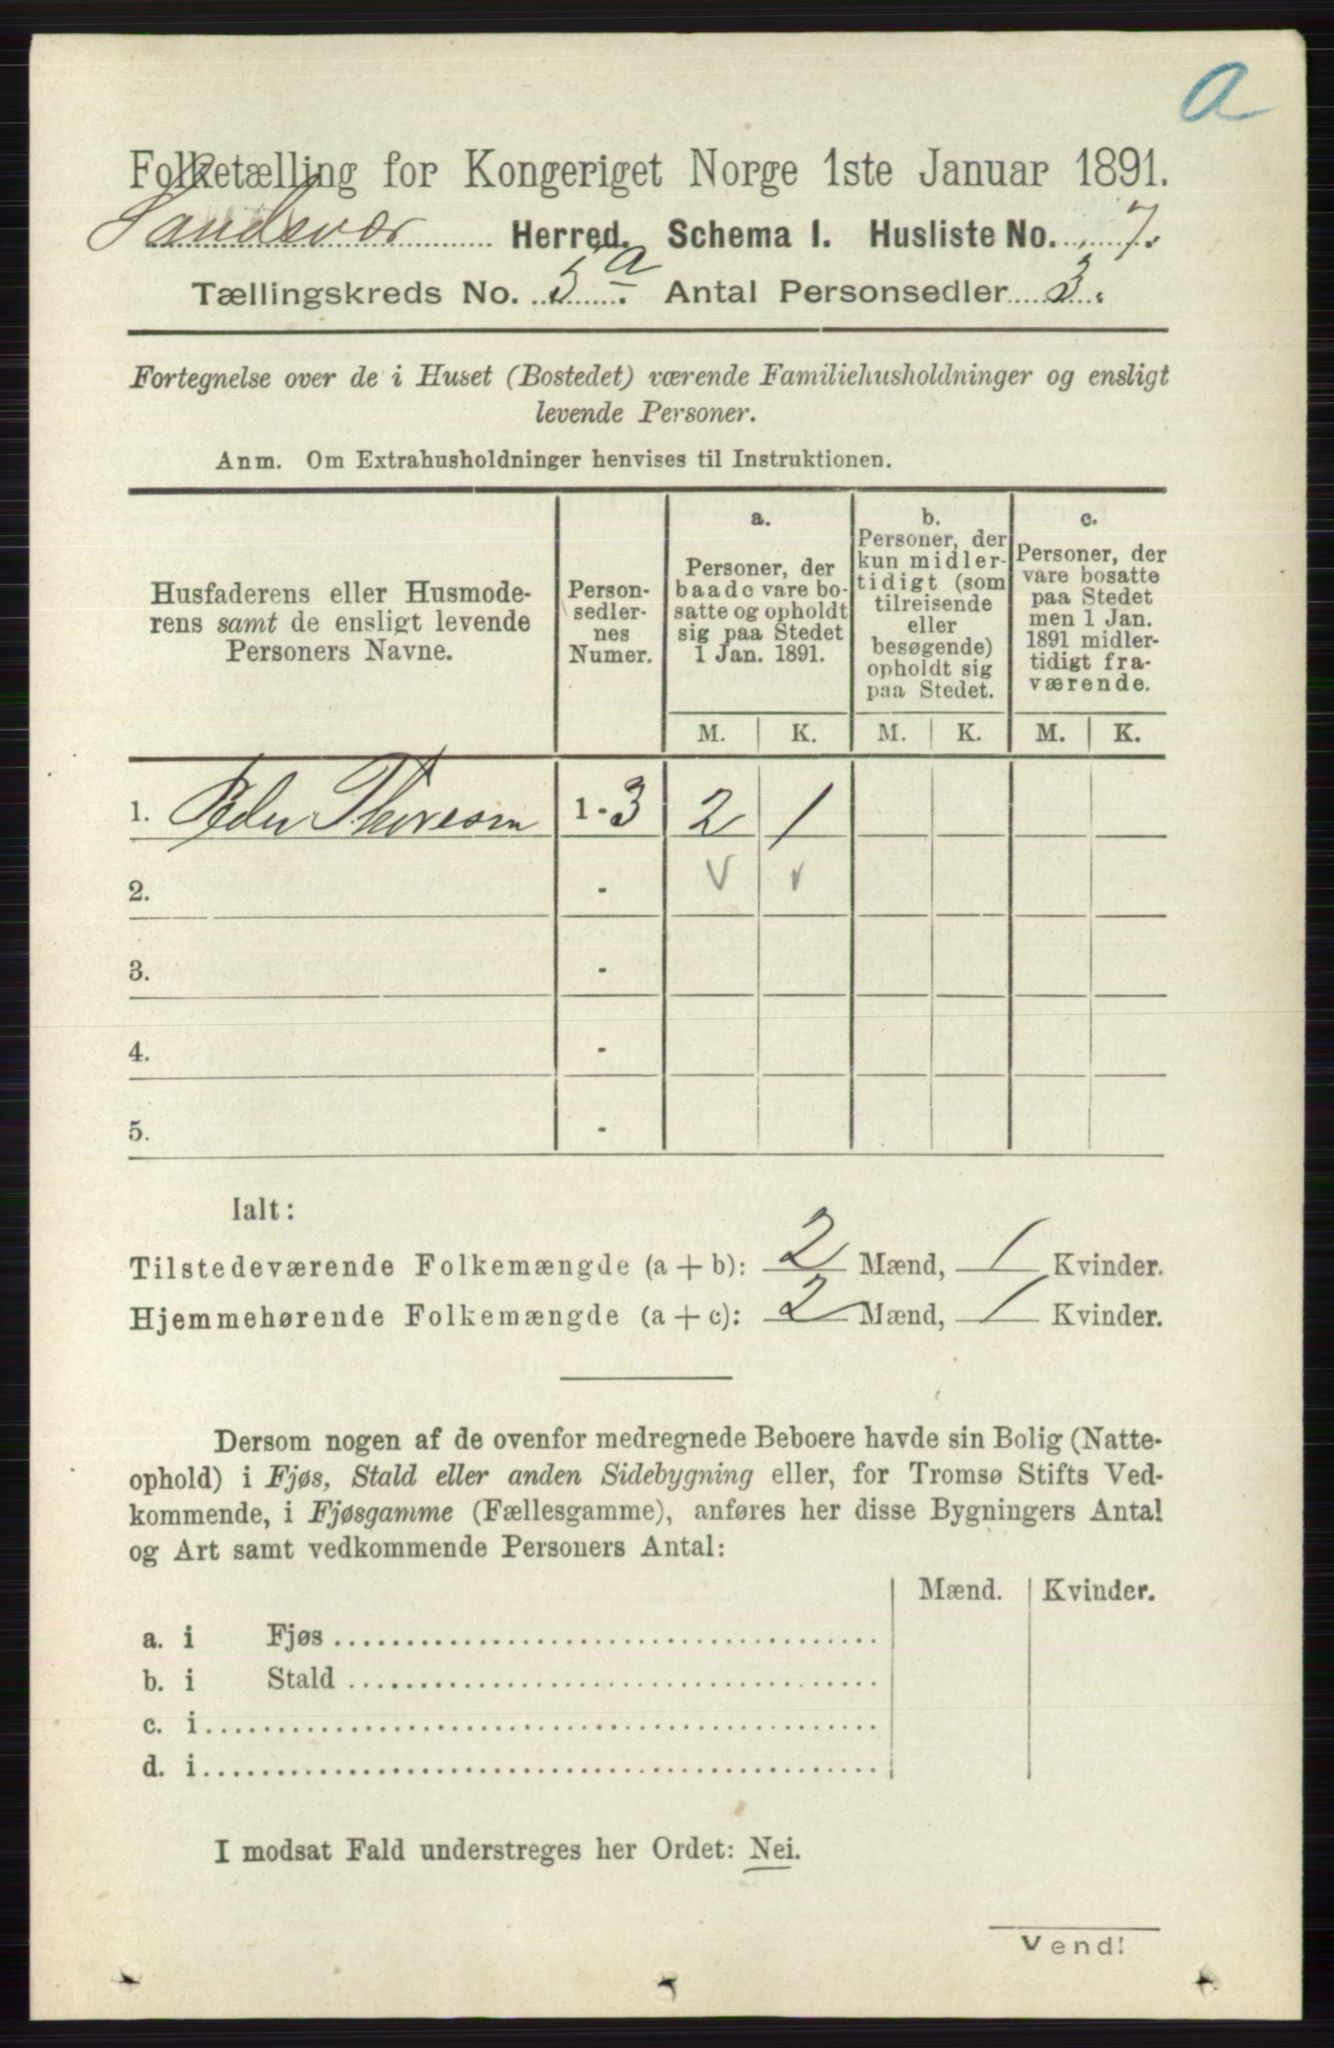 a
Folketælling for Kongeriget Norge 1ste Januar 1891.
Sandsvær Herred. Schema I. Husliste No. 7.
Tællingskreds No. 5 a. Antal Personsedler 3.
Fortegnelse over de i Huset (Bostedet) værende Familiehusholdninger og ensligt
levende Personer.
Anm. Om Extrahusholdninger henvises til Instruktionen.
Husfaderens eller Husmode-
rens samt de ensligt levende
Personers Navne.
Person-
sedler-
nes
Numer.
a.
Personer, der
baade vare bo-
satte og opholdt
sig paa Stedet
1 Jan. 1891.
b.
Personer, der
kun midler-
tidigt (som
tilreisende
eller
besøgende)
opholdt sig
paa Stedet.
c.
Personer, der
vare bosatte
paa Stedet
men 1 Jan.
1891 midler-
tidigt fra-
værende.
M. K. M. K. M. K.
1. Peder Thoresen 1-3 2 1
2. -
3. -
4. -
5. -
Ialt:
Tilstedeværende Folkemængde (a + b): 2 Mænd, 1 Kvinder.
Hjemmehørende Folkemængde (a + c): 2 Mænd, 1 Kvinder.
Dersom nogen af de ovenfor medregnede Beboere havde sin Bolig (Natte-
ophold) i Fjøs, Stald eller anden Sidebygning eller, for Tromsø Stifts Ved-
kommende, i Fjøsgamme (Fællesgamme), anføres her disse Bygningers Antal
og Art samt vedkommende Personers Antal:
Mænd. Kvinder.
a. i Fjøs
b. i Stald
c. i
d. i
I modsat Fald understreges her Ordet: Nei.
Vend!